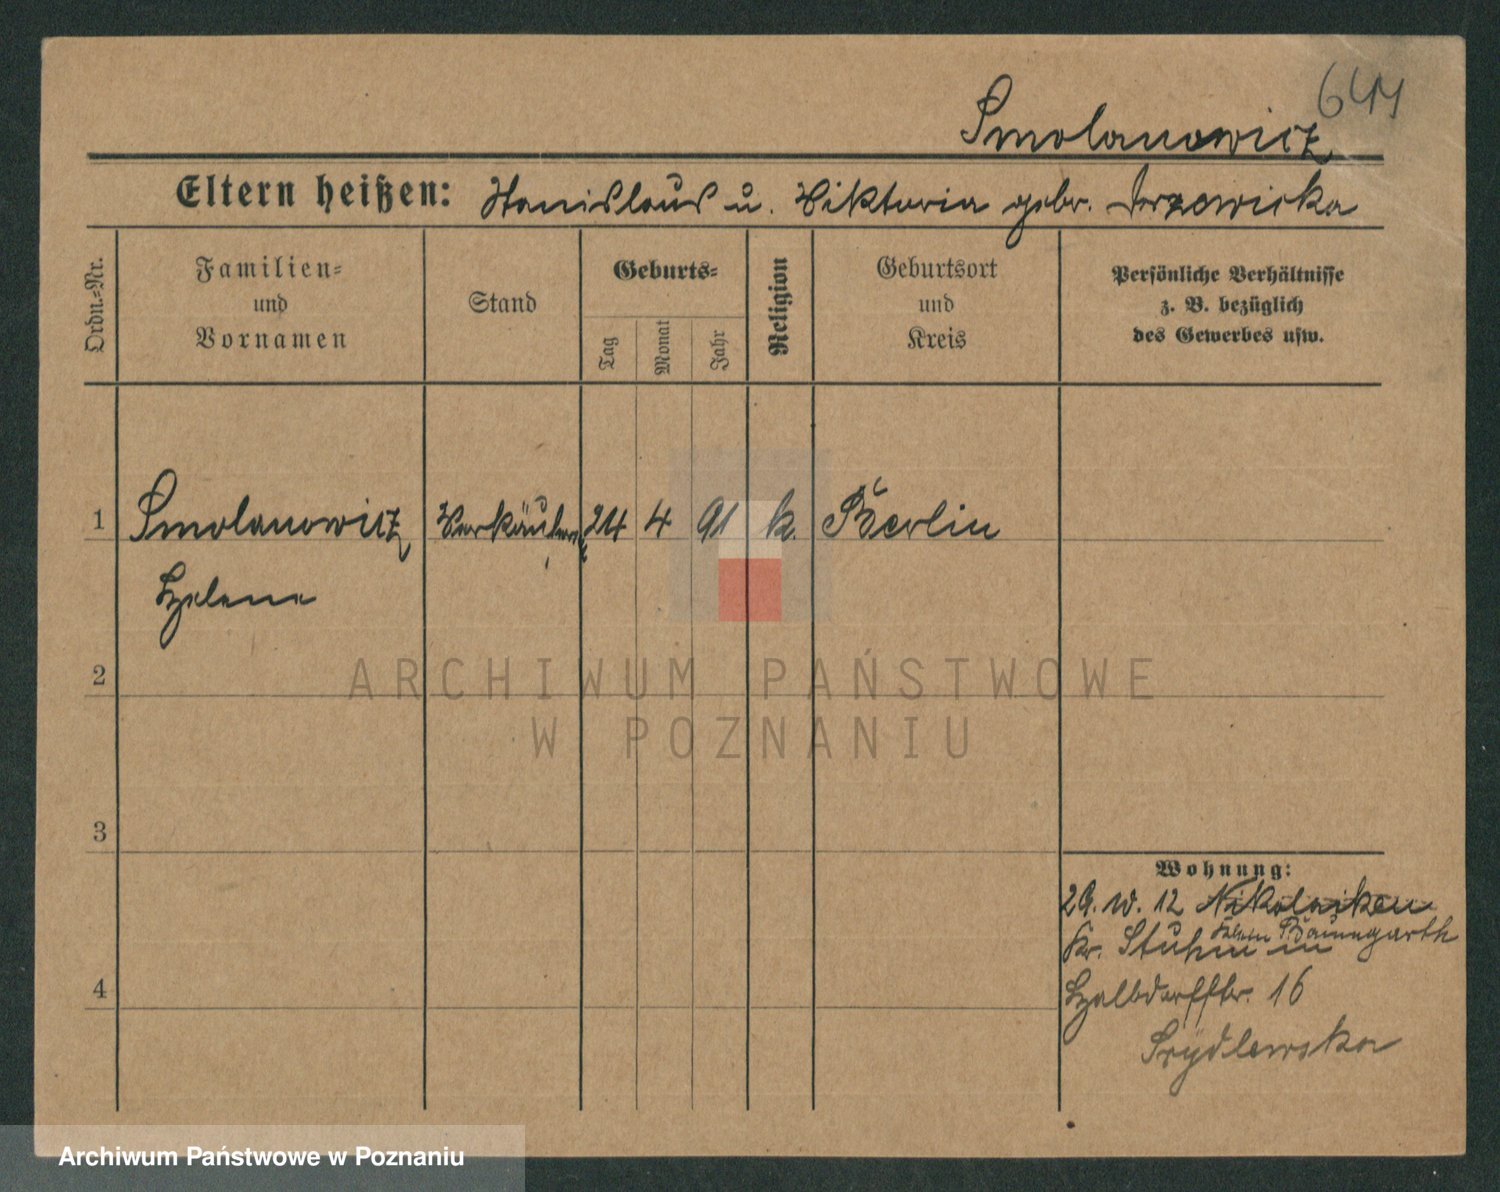 644
Smolanowicz
Eltern heißen: Stanislaus u. Viktoria gebr. Drzewicka
Ordn.-Nr.
Familien-
und
Vornamen
Stand
Geburts-
Tag
Monat
Jahr
Religion
Geburtsort
und
Kreis
Persönliche Verhältnisse
z. B. bezüglich
des Gewerbes usw.
1 Smolanowicz Verkäuferin 24 4 91 k. Berlin
Helene
2
3
4
Wohnung:
29. 10. 12 Nikolaiken
Klein Baumgarth
Kr. Stuhm in
Halbdorfstr. 16
ARCHIWUM PAŃSTWOWE
W POZNANIU
Archiwum Państwowe w Poznaniu